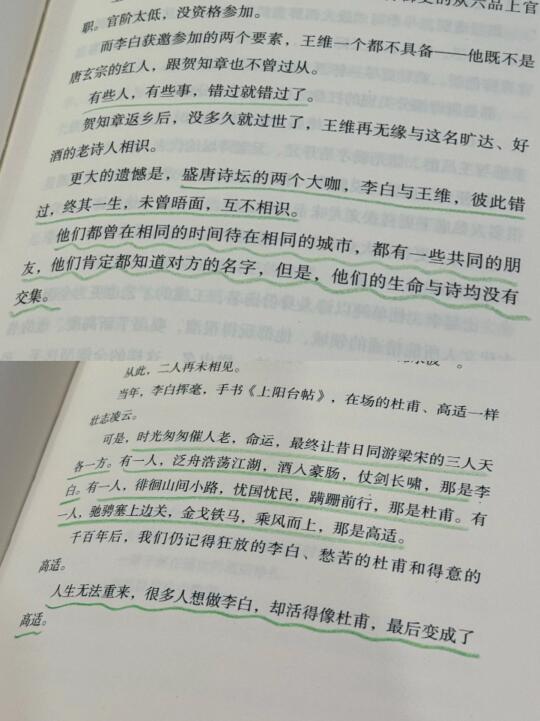 职。官阶太低，没资格参加。
而李白获邀参加的两个要素，王维一个都不具备——他既不是
唐玄宗的红人，跟贺知章也不曾过从。
有些人，有些事，错过就错过了。
贺知章返乡后，没多久就过世了，王维再无缘与这名旷达、好
酒的老诗人相识。
更大的遗憾是，盛唐诗坛的两个大咖，李白与王维，彼此错
过，终其一生，未曾晤面，互不相识。
他们都曾在相同的时间待在相同的城市，都有一些共同的朋
友，他们肯定都知道对方的名字，但是，他们的生命与诗均没有
交集。
从此，二人再未相见。
当年，李白挥毫，手书《上阳台帖》，在场的杜甫、高适一样
壮志凌云。
可是，时光匆匆催人老，命运，最终让昔日同游梁宋的三人天
各一方。有一人，泛舟浩荡江湖，酒入豪肠，仗剑长啸，那是李
白。有一人，徘徊山间小路，忧国忧民，蹒跚前行，那是杜甫。有
一人，驰骋塞上边关，金戈铁马，乘风而上，那是高适。
千百年后，我们仍记得狂放的李白、愁苦的杜甫和得意的
高适。
人生无法重来，很多人想做李白，却活得像杜甫，最后变成了
高适。